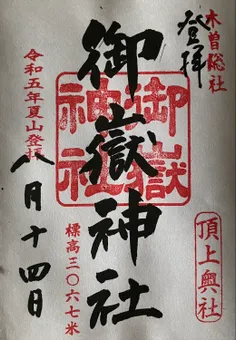 木曽総社
登拝
御嶽神社
御嶽
神社
標高三〇六七米
頂上奥社
令和五年夏山登拝
八月十四日